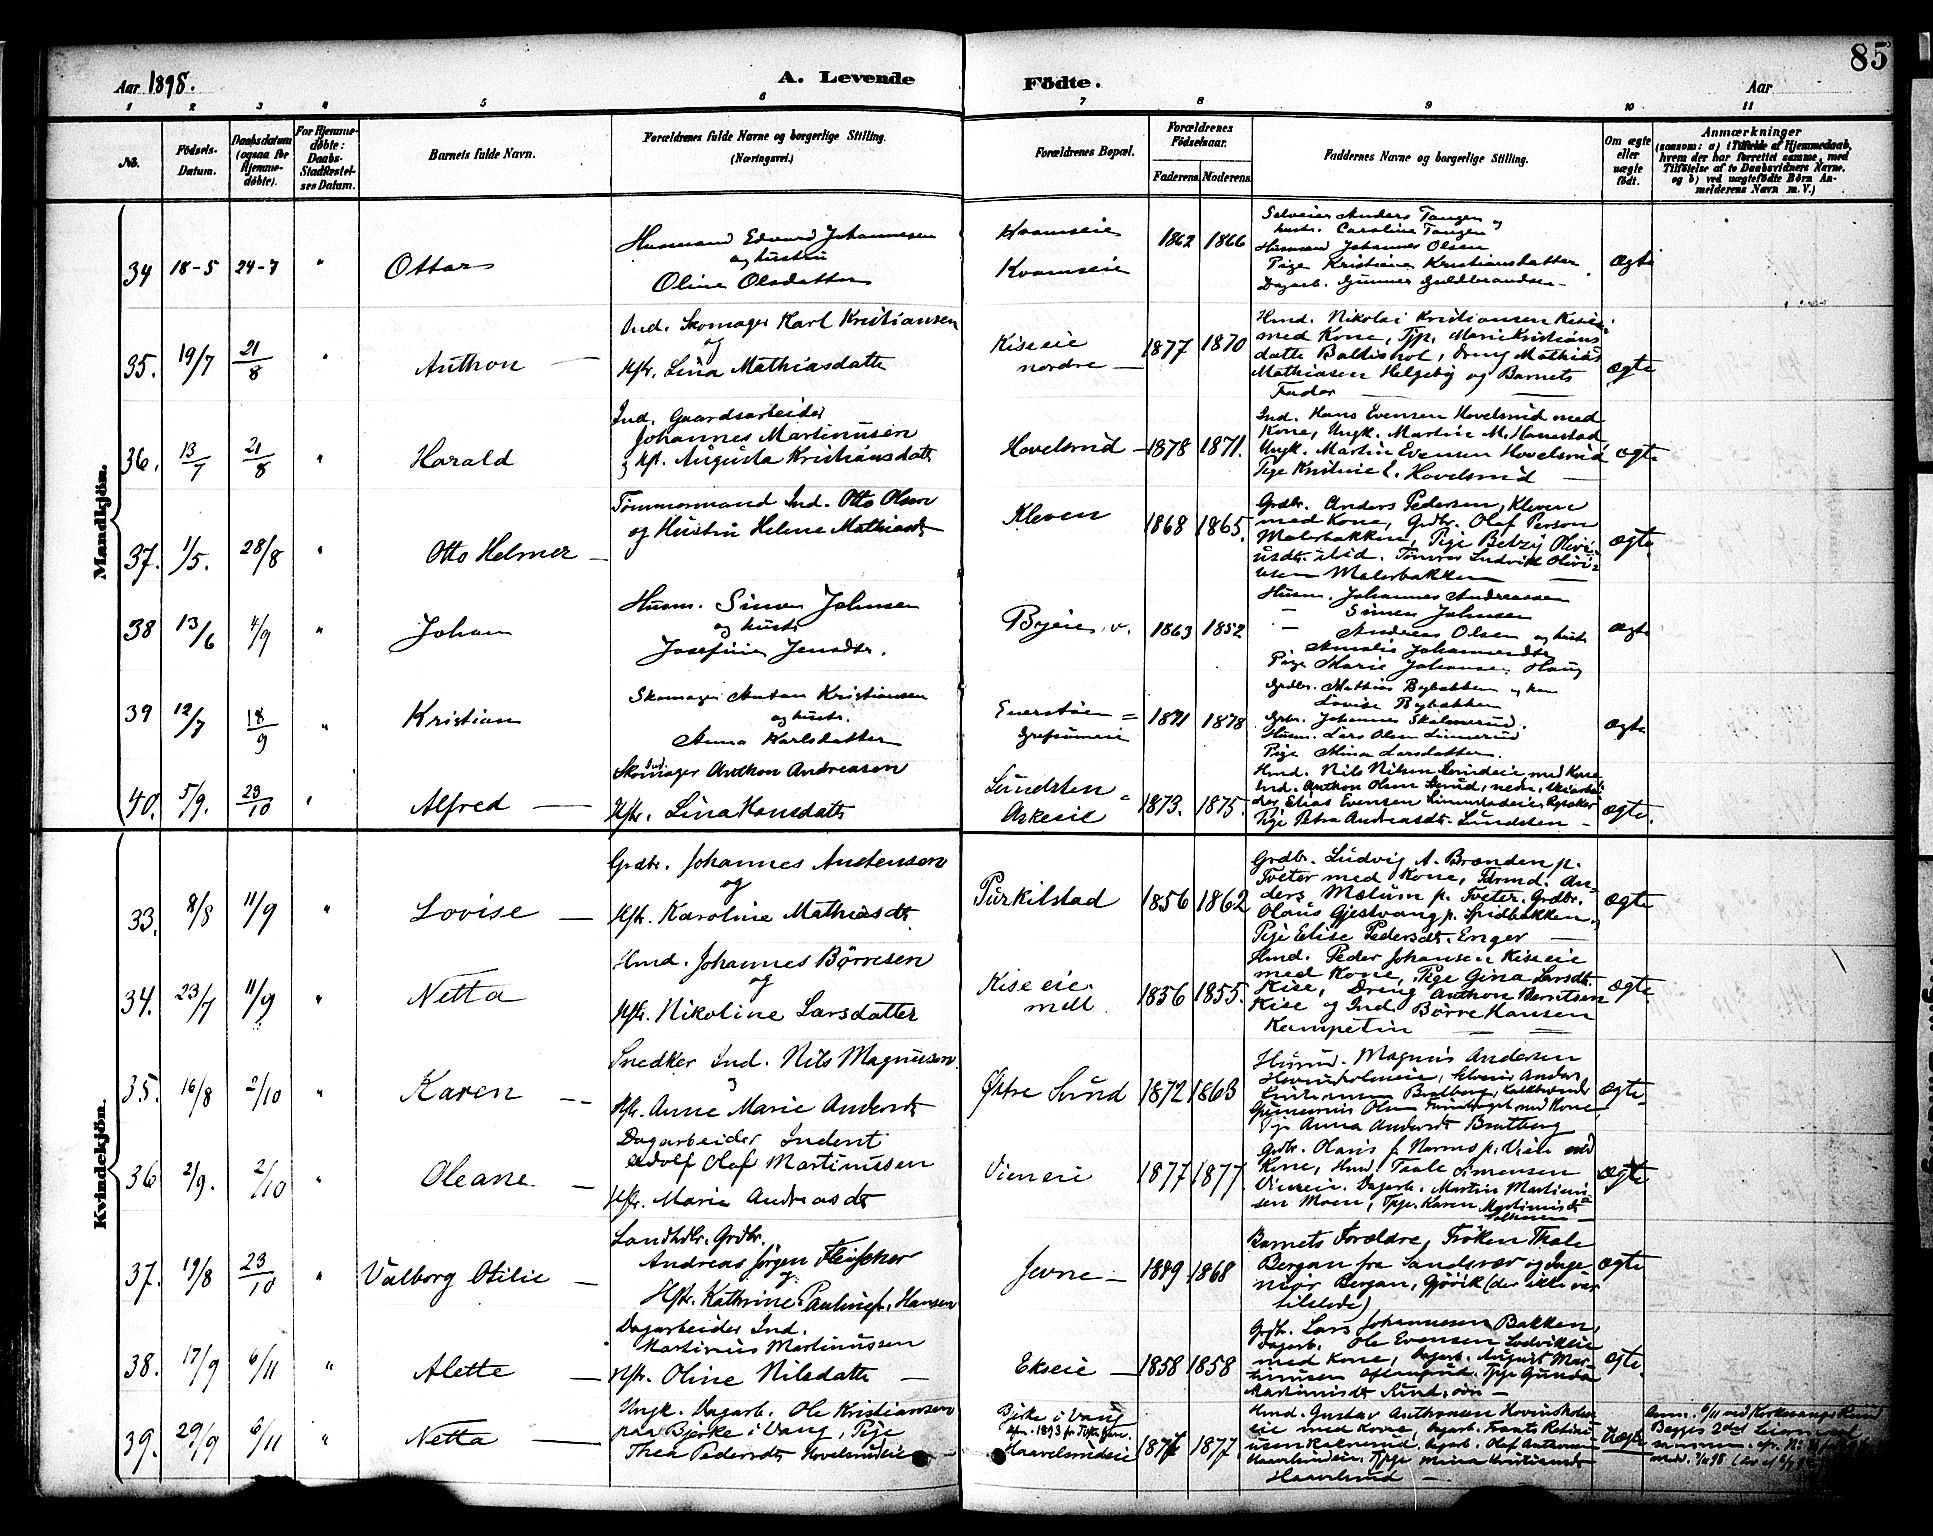 85
Aar 1898.
A. Levende Födte.
Aar
1 2 3 4 5 6 7 8 9 10 11
No.
Födsels-Datum.
Daabsdatum (ogsaa for Hjemme-döbte).
For Hjemme-döbte: Daabs-Stadfæstel-ses Datum.
Barnets fulde Navn.
Forældrenes fulde Navne og borgerlige Stilling.
(Næringsvei.)
Forældrenes Bopæl.
Forældrenes Födselsaar.
Faderens. Moderens.
Faddernes Navne og borgerlige Stilling.
Om ægte eller uægte födt.
Anmærkninger
(saasom: a) i Tilfælde af Hjemmedaab,
hvem der har forrettet samme, med
Tilföielse af to Daabsvidners Navne.
og b) ved uægtefödte Börn An-
melderens Navn m. V.)
Mandkjön.
34 18-5 24-7 " Ottar
Husmand Edvard Johannesen
og hustru
Oline Olsdatter
Kvamseie
Kvamseie
1862 1866
Selveier Anders Tangen og
hustr. Caroline Tangen
Husmand Johannes Olsen
Pige Kristiane Kristiansdatter
Dagarb. Gunner Guldbrandsen
Ægte
35. 19/7 21/8 " Anthon —
Ind. Skomager Karl Kristiansen
og
Hstr. Lina Mathiasdatte
Kiseeie
nordre —
1877 1870
Hmd. Nikolai Kristiansen Kiseei
med Kone, Tjp. Marie Kristians
datte Baltishol, Dreng Mathias
Mathiasen Helgeby og Barnets
Fader —
ægte
36. 13/7 21/8 " Harald
Ind. Gaardsarbeider
Johannes Martinusen
og Hst. Augusta Kristiansdatt
Hovelsrud — 1878 1871.
Ind. Hans Evensen Hovelsrud med
Kone, Ungk. Martin M. Hanestad
Ungk. Martin Evensen Hovelsrud
Pige Kristine E. Hovelsrud —
ægte
37. 1/5. 28/8 " Otto Helmer —
Tømmermand Ind. Otto Olsen
og Hustru Helene Mathiasdt
Kleven
1868 1865.
Grdbr. Anders Pedersen, Kleven
med Kone, Grdbr. Olaf Person
Malerbakken, Pige Betzy Olivi-
usdt. ibid. Tømrer Ludvik Olivi-
usen Malerbakken —
ægte
38 13/6 4/9 " Johan
Husm. Simen Johnsen
og hustr
Josefine Jensdtr.
Byeie, v. 1863 1852
Husm. Johannes Andreassen
— Simen Johnsen
— Andreas Olsen og hustr
Amalie Johannesdtr
Pige Marie Johansen Haug
ægte
39 12/7 18/9 " Kristian
Skomager Anton Kristiansen
og hustr.
Anna Karlsdatter
Enerstuen =
Grefsumeie
1871 1878
Grdbr. Mathias Bybakken og kone
Lovise Bybakken
Grbr. Johannes Skalmerud.
Husm. Lars Olsen Linnerud
Pige Mina Larsdatter
ægte
40. 5/9. 23/10 " Alfred —
Ind.
Skomager Anthon Andreasen
Hstr. Lina Hansdatte
Lundsten =
Askeeie
1873. 1875.
Hmd. Nils Nilsen med Kone
Ind. Anthon Olsen
der Elias Evensen
Pige Petra Andreasdt. Lundsten —
ægte.
Kvindekjön.
33. 8/8 11/9 " Lovise —
Grdbr. Johannes Austensen
og
Hstr. Karoline Mathiasdt
Purkilstad 1856 1862
Grdbr. Ludvig A. Brenden p.
Tveter med Kone, Fdrmd. An-
ders Mælum p. Tveter. Grdbr.
Olaus Gjestvang p. Smidbakken,
Pige Elise Pedersdt. Enger —
ægte
34. 23/7 11/9 " Netta
Hmd. Johannes Børresen
og
Hstr. Nikoline Larsdatter
Kiseeie
mell.
1856 1855.
Hmd. Peder Johansen Kiseeie
med Kone, Pige Gina Larsdt.
Kise, Dreng Anthon Berntsen
Kise og Ind. Børre Hansen
Kampetin —
ægte
35. 16/8 2/10 " Karen —
Snedker Ind. Nils Magnussen
og
Hstr. Anne Marie Andersdt
Østre Sund 1872 1863
Husmd. Magnus Andersen
Hovinsholmeie, Anders
Bratberg,
Gunerius Olsen med Kone
Pige Anna Andersdt Bratberg
ægte
36 2/9. 2/10 " Oleane —
Dagarbeider Indent
Adolf Olaf Martinussen
Hstr. Marie Andreasdt
Vieneie 1877 1877.
Grdbr. Olaus J. Narms p. Vien med
Kone, Hmd. Taale Simensen
Vieneie, Dagarb. Martin Martinu-
sen Moen, Tpge. Karen Martinusdt
ægte
37. 19/8 23/10 " Valborg Otilie —
Landhdlr. Grdbr.
Andreas Jörgen Fleischer
og
Hstr. Kathrine Paulinef. Hansen
Jevne — 1849 1868
Barnets Forældre, Frøken Thale
Bergan fra Sandsvær og Inge-
niør Bergan, Gjøvik (der ikke var
tilstede)
ægte
38. 17/9 6/11 " Alette —
Dagarbeider Ind.
Martinus Martinussen
Hstr. Oline Nilsdatte —
Ekeeie — 1858 1858
Grdb. Lars Johannesen Bakken,
Dagarb. Ole Evensen Lodvikeie
med Kone, Dagarb. August Mar-
tinusen Tpge Gunda
Martinusdt —
ægte.
39. 29/9 6/11 " Netta —
Ungk. Dagarb. Ole Kristiansen
paa Bjerke i Vang, Pige
Thea Pedersdt Hovelsrudeie —
Bjerke i Vang
Haavelsrudeie
1876 1877.
Hmd. Gustav Anthonsen Hovinsholm-
eie med Kone, Dagarb. Frants
Dagarb. Olaf Anthonsen
Haavelsrudeie. Tpge Mina Kristiansdt
Haavelsrud —
Uægte
Ann. 6/11 ved
Begges 2det Leiermaal